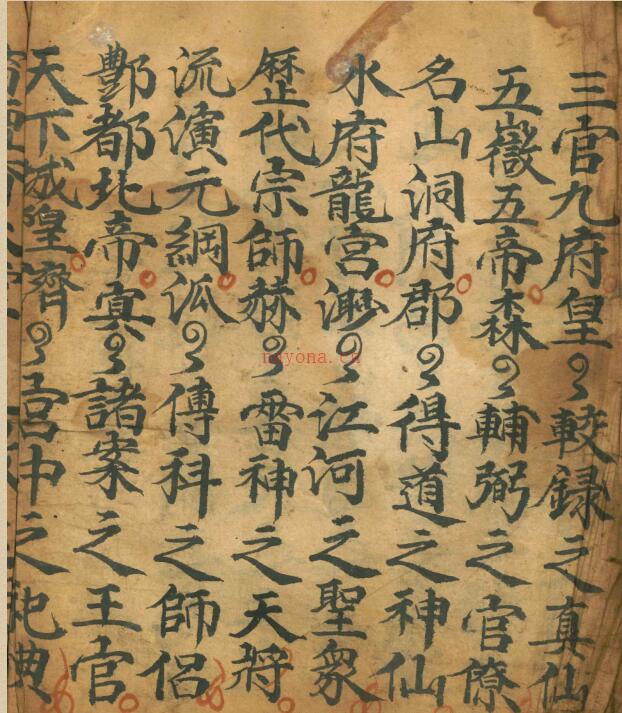 三官九府皇〻較録之真仙
五嶽五帝森〻輔弼之官僚
名山洞府郡〻得道之神仙
水府龍宮渺〻江河之聖眾
歷代宗師赫〻雷神之天將
流演元綱派〻傳科之師侶
酆都北帝寘〻諸案之王官
天下城皇齊〻宮中之祀典